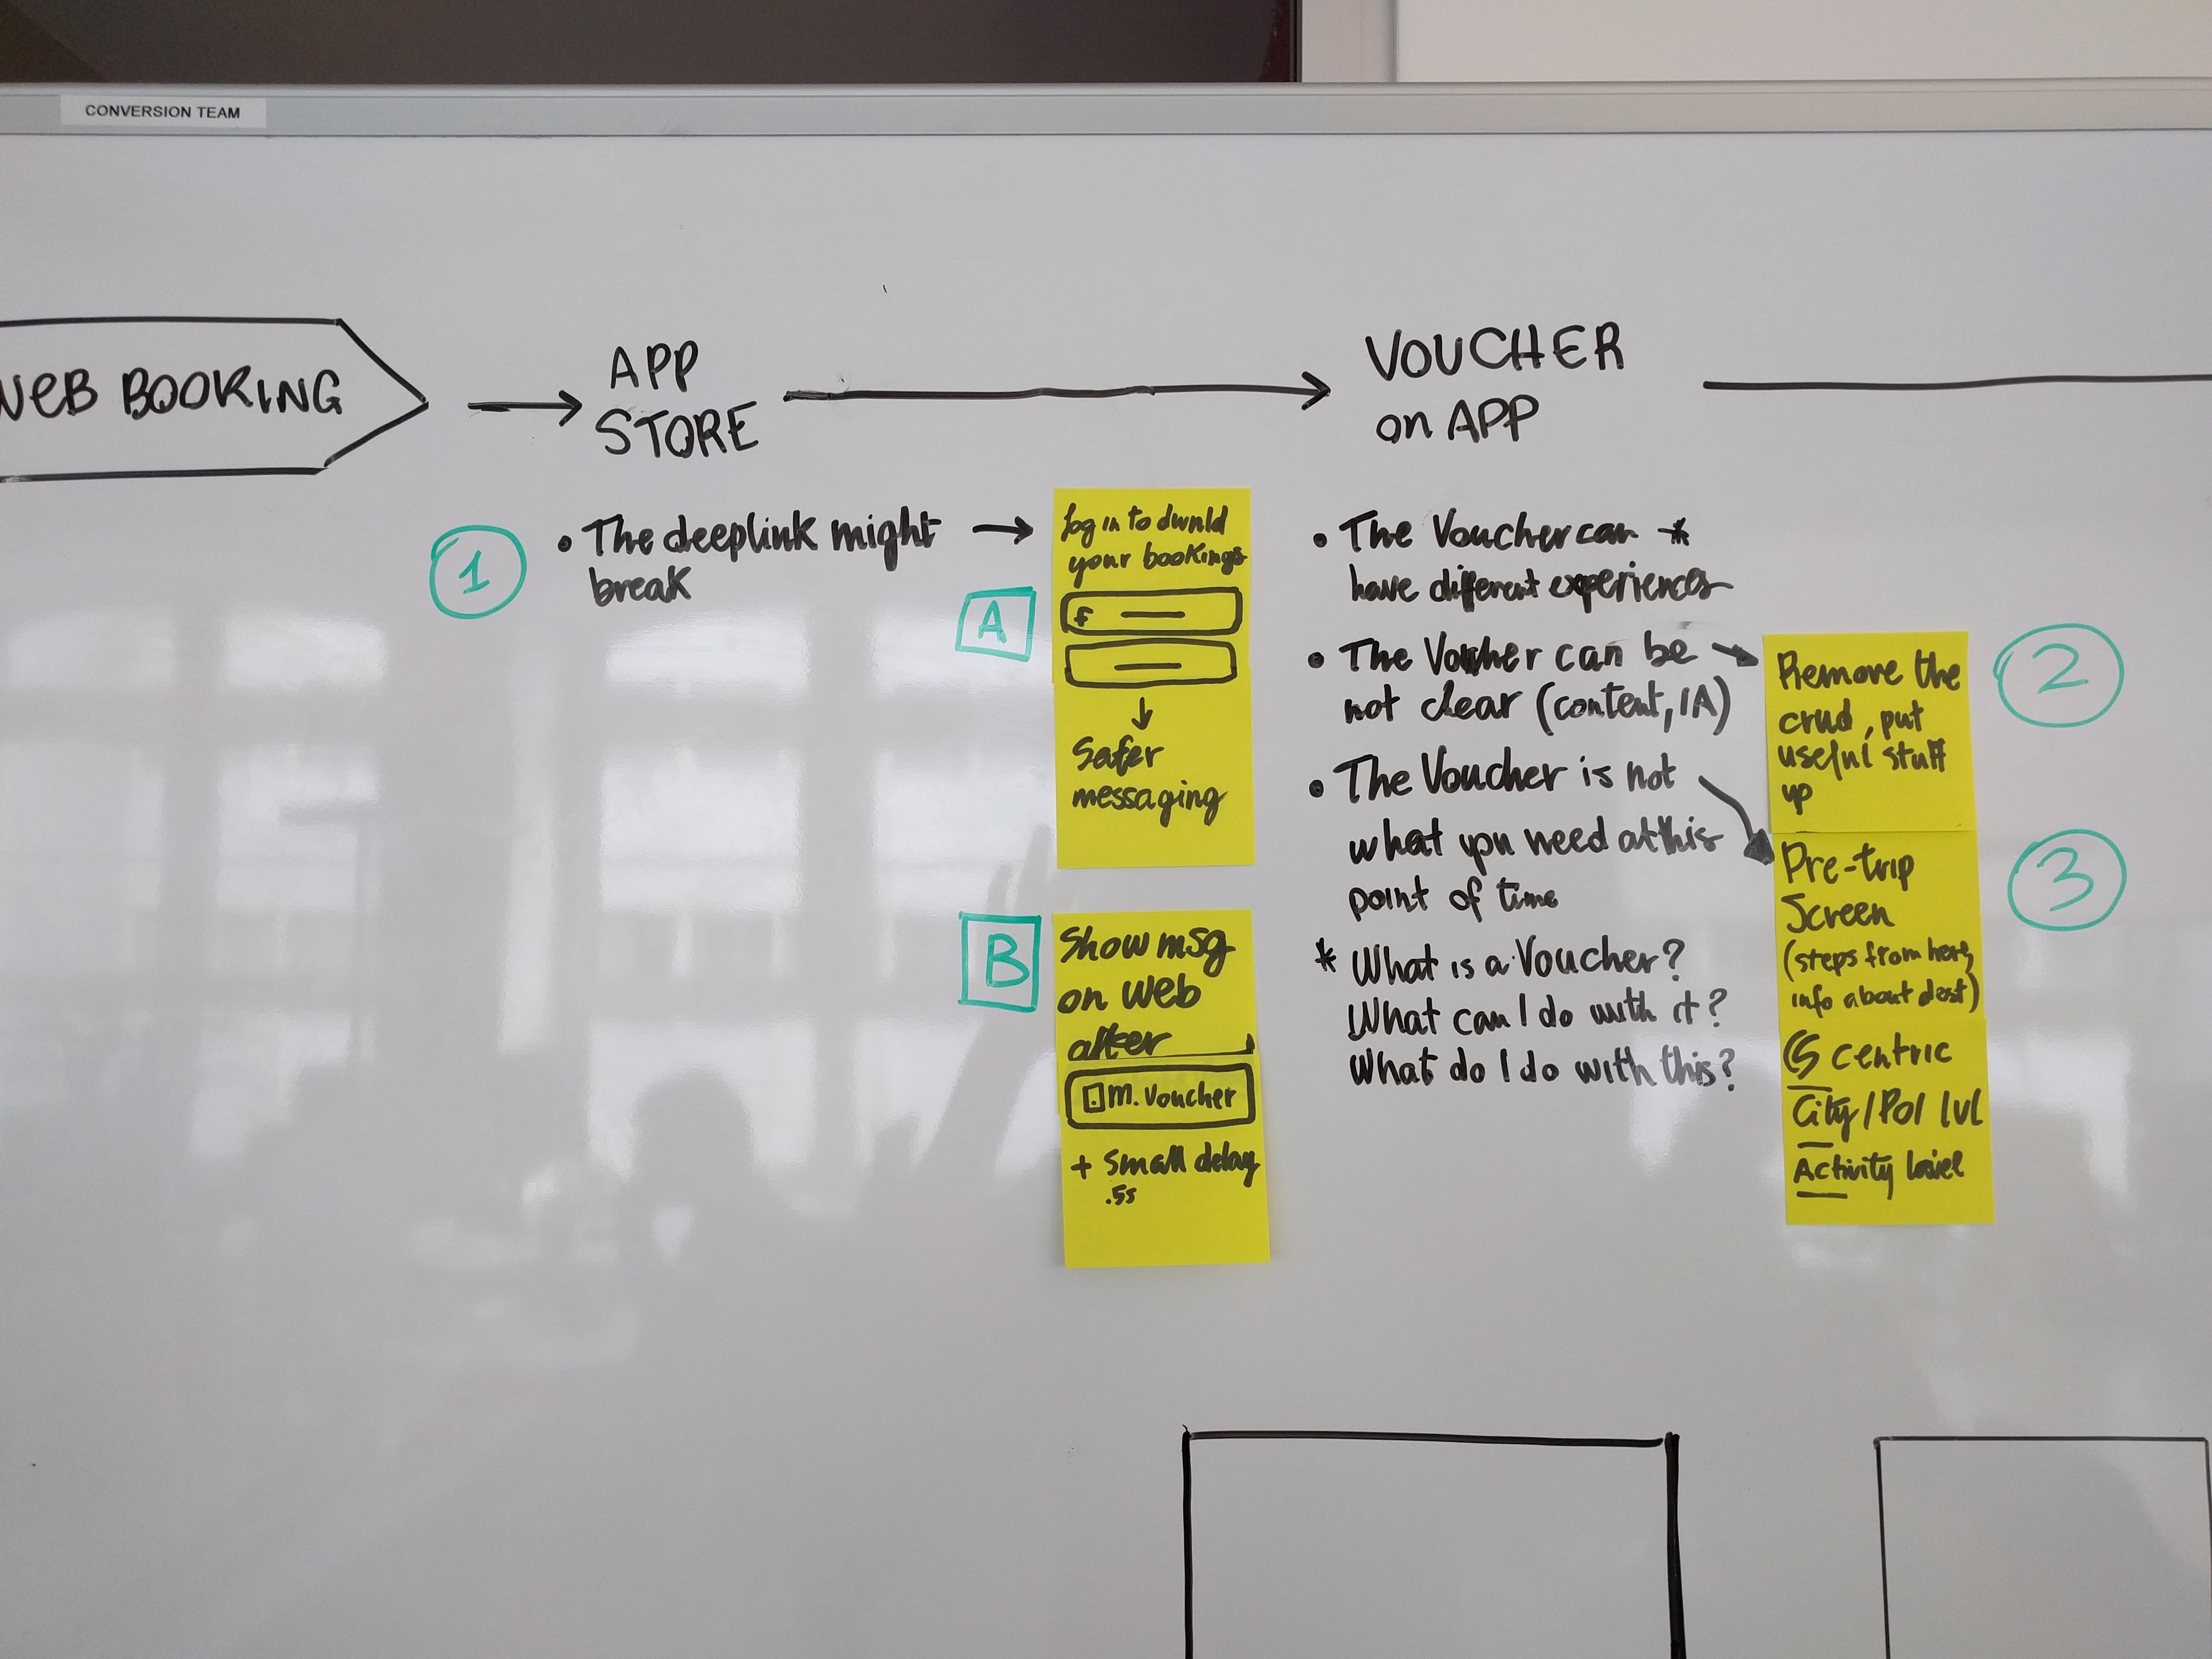 CONVERSION TEAM
WEB BOOKING
APP
STORE
VOUCHER
on APP
1
• The deeplink might
break
A
log in to dwnld
your bookings
f
Safer
messaging
B
Show msg
on web
after
M. Voucher
+ small delay
.5s
• The Voucher can *
have different experiences
• The Voucher can be
not clear (content, IA)
• The Voucher is not
what you need at this
point of time
* What is a Voucher?
What can I do with it?
What do I do with this?
2
Remove the
crud, put
useful stuff
up
3
Pre-trip
Screen
(steps from here,
info about dest)
centric
City/POI lvl
Activity level